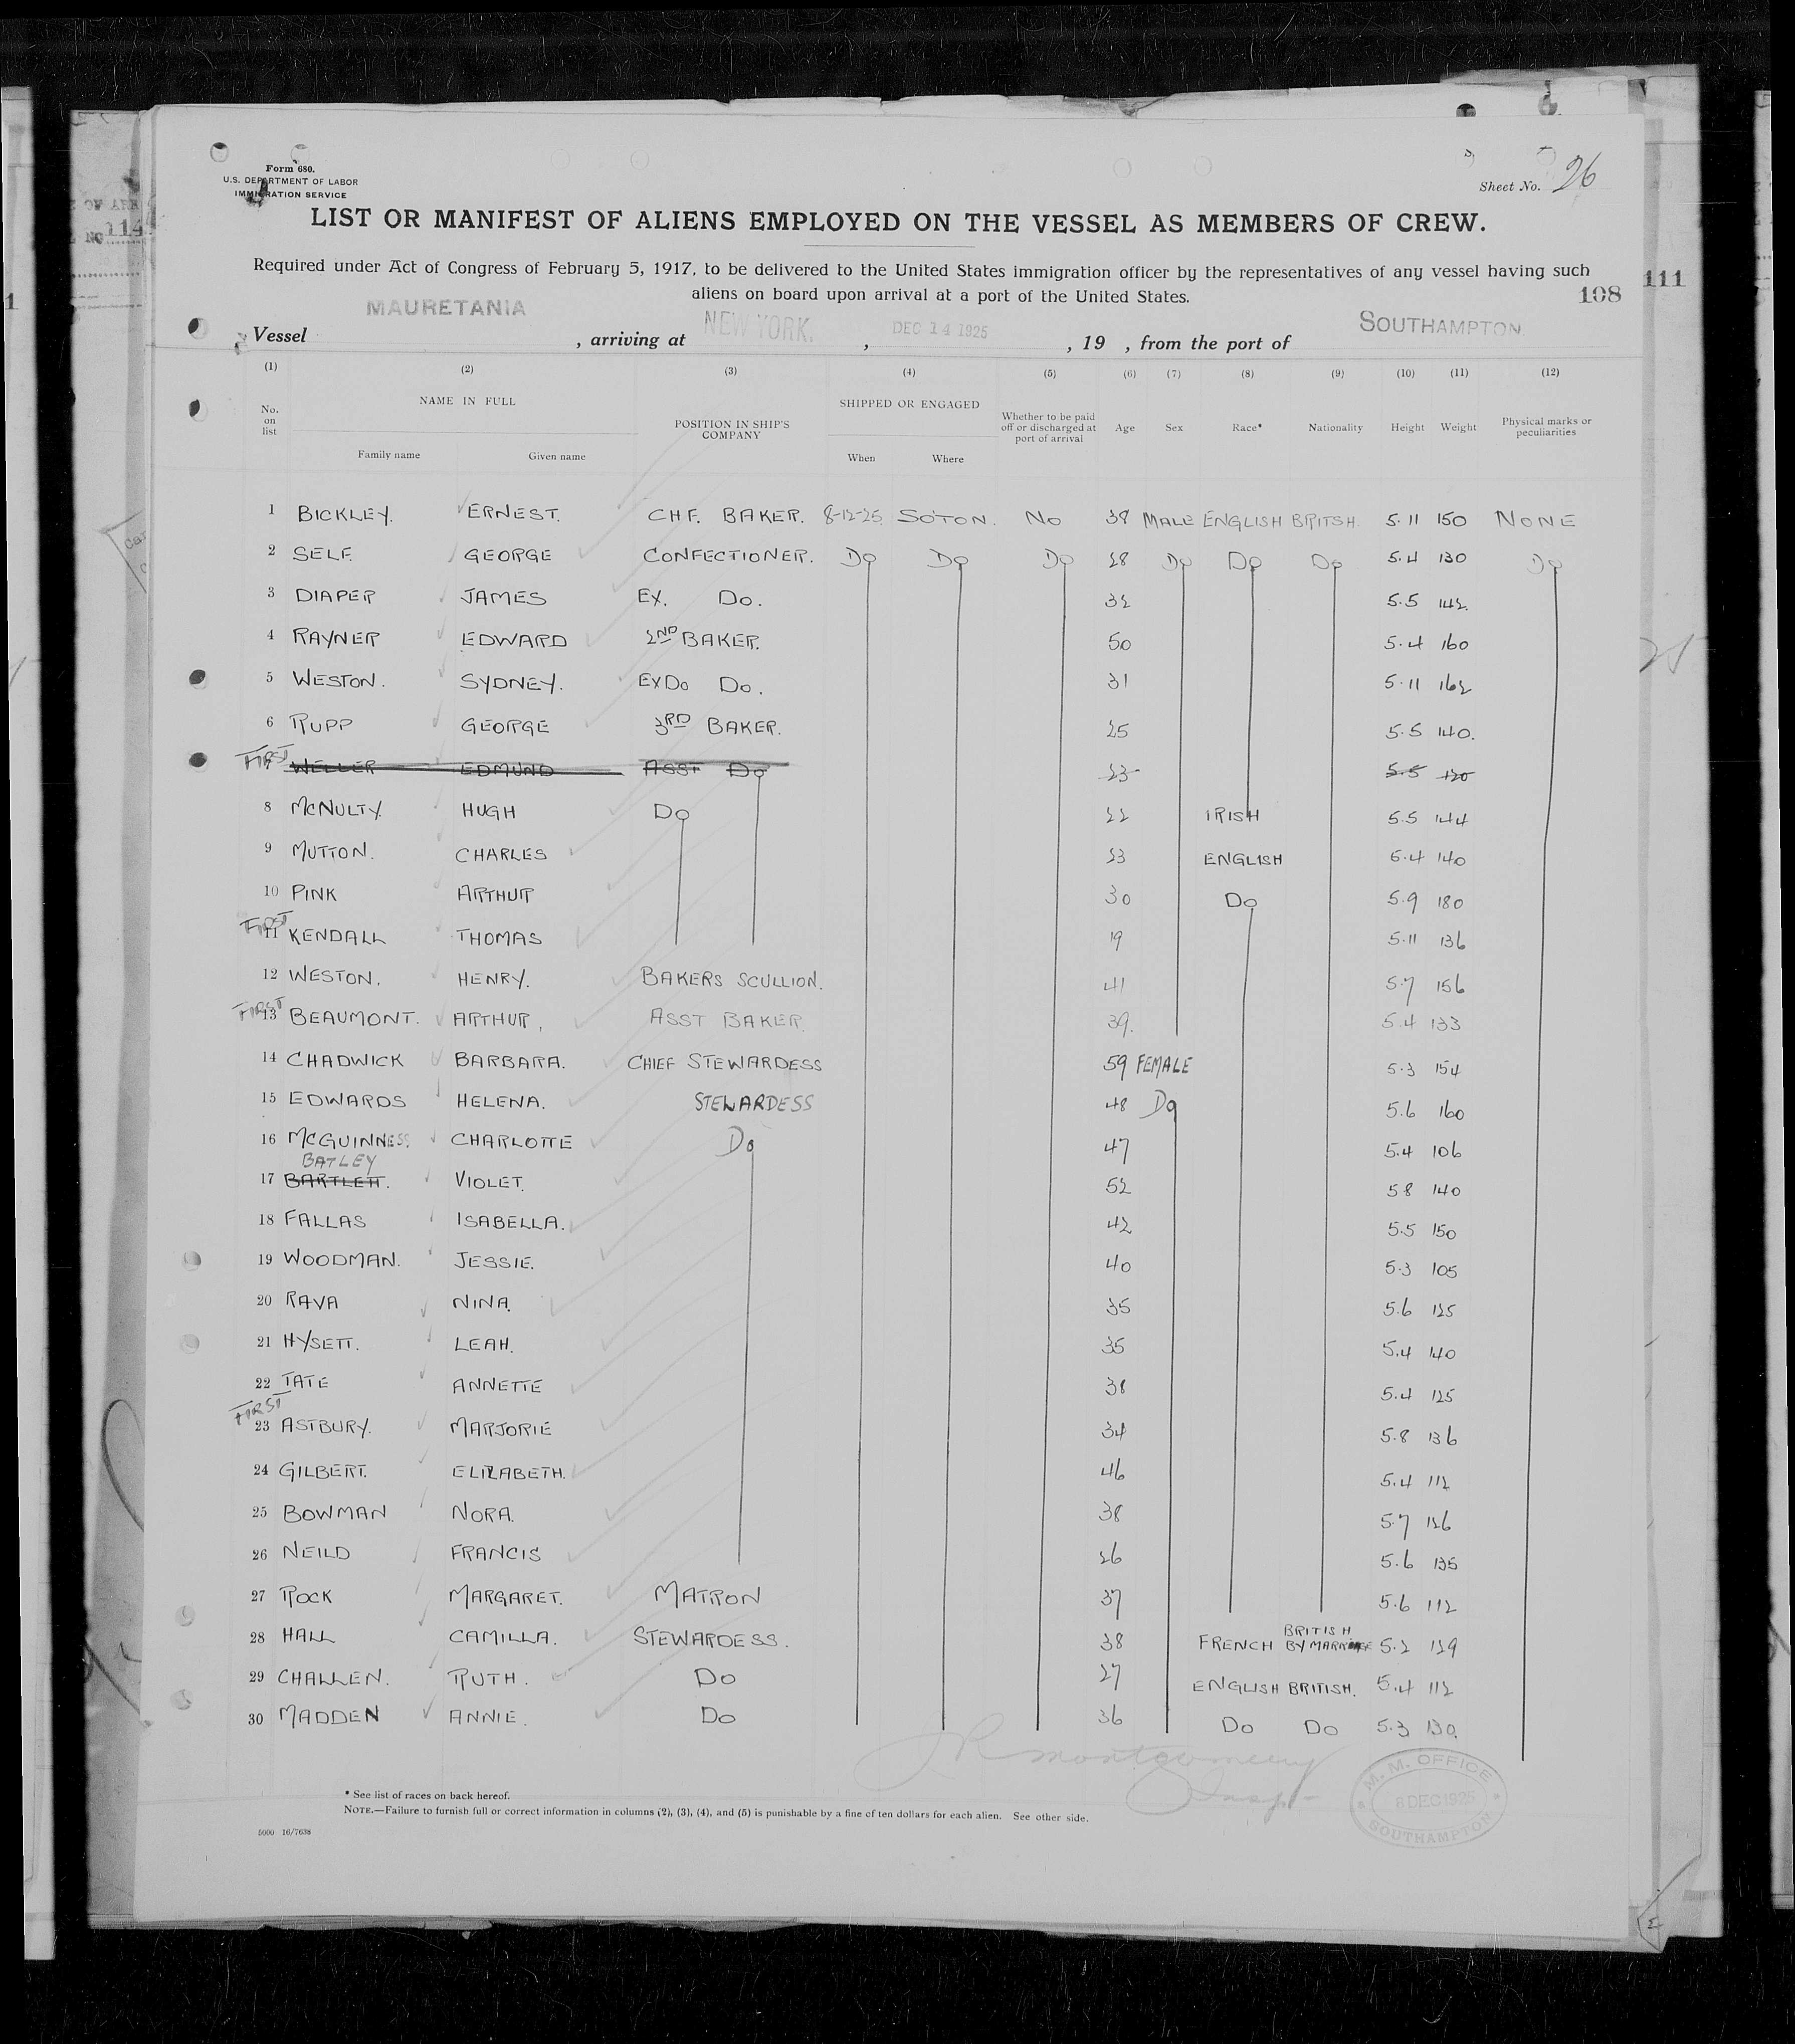 Form 680.
U.S. DEPARTMENT OF LABOR
IMMIGRATION SERVICE
Sheet No. 26
LIST OR MANIFEST OF ALIENS EMPLOYED ON THE VESSEL AS MEMBERS OF CREW.
Required under Act of Congress of February 5, 1917, to be delivered to the United States immigration officer by the representatives of any vessel having such
aliens on board upon arrival at a port of the United States.
108
111
114
Vessel MAURETANIA, arriving at NEW YORK., DEC 14 1925, 19 , from the port of SOUTHAMPTON
(1) (2) (3) (4) (5) (6) (7) (8) (9) (10) (11) (12)
No. on list NAME IN FULL Family name Given name POSITION IN SHIP'S COMPANY SHIPPED OR ENGAGED When Where Whether to be paid off or discharged at port of arrival Age Sex Race* Nationality Height Weight Physical marks or peculiarities
1 BICKLEY. ERNEST. CHF. BAKER. 8-12-25 SOTON. NO 38 MALE ENGLISH BRITSH. 5.11 150 NONE
2 SELF. GEORGE CONFECTIONER. DO DO DO 28 DO DO DO 5.4 130 DO
3 DIAPER JAMES EX. DO. 32 5.5 142.
4 RAYNER EDWARD 2ND BAKER. 50 5.4 160
5 WESTON. SYDNEY. EXDO DO. 31 5.11 162
6 RUPP GEORGE 3RD BAKER. 25 5.5 140.
FIRST 7 WELLER EDMUND ASST DO 23 5.5 120
8 MCNULTY. HUGH DO 22 IRISH 5.5 144
9 MUTTON. CHARLES 23 ENGLISH 5.4 140
10 PINK ARTHUR 30 DO 5.9 180
FIRST 11 KENDALL THOMAS 19 5.11 136
12 WESTON. HENRY. BAKERS SCULLION. 41 5.7 156
FIRST 13 BEAUMONT. ARTHUR, ASST BAKER. 39. 5.4 133
14 CHADWICK BARBARA. CHIEF STEWARDESS 59 FEMALE 5.3 154
15 EDWARDS HELENA. STEWARDESS 48 DO 5.6 160
16 MCGUINNESS. CHARLOTTE DO 47 5.4 106
BATLEY
17 BARTLETT. VIOLET. 52 5 8 140
18 FALLAS ISABELLA. 42 5.5 150
19 WOODMAN. JESSIE. 40 5.3 105
20 RAVA NINA. 35 5.6 125
21 HYSETT. LEAH. 35 5.4 140
22 TATE ANNETTE 38 5.4 125
FIRST 23 ASTBURY. MARJORIE 34 5.8 136
24 GILBERT. ELIZABETH. 46 5.4 112
25 BOWMAN NORA. 38 5.7 126
26 NEILD FRANCIS 26 5.6 135
27 ROCK MARGARET. MATRON 37 5.6 112
28 HALL CAMILLA. STEWARDESS. 38 FRENCH BRITISH BY MARRIAGE 5.2 129
29 CHALLEN. RUTH. DO 27 ENGLISH BRITISH. 5.4 112
30 MADDEN ANNIE. DO 36 DO DO 5.3 130.
JR Montgomery
Insp.
M. M. OFFICE
8 DEC 1925
SOUTHAMPTON
* See list of races on back hereof.
NOTE.—Failure to furnish full or correct information in columns (2), (3), (4), and (5) is punishable by a fine of ten dollars for each alien. See other side.
5000 16/7638